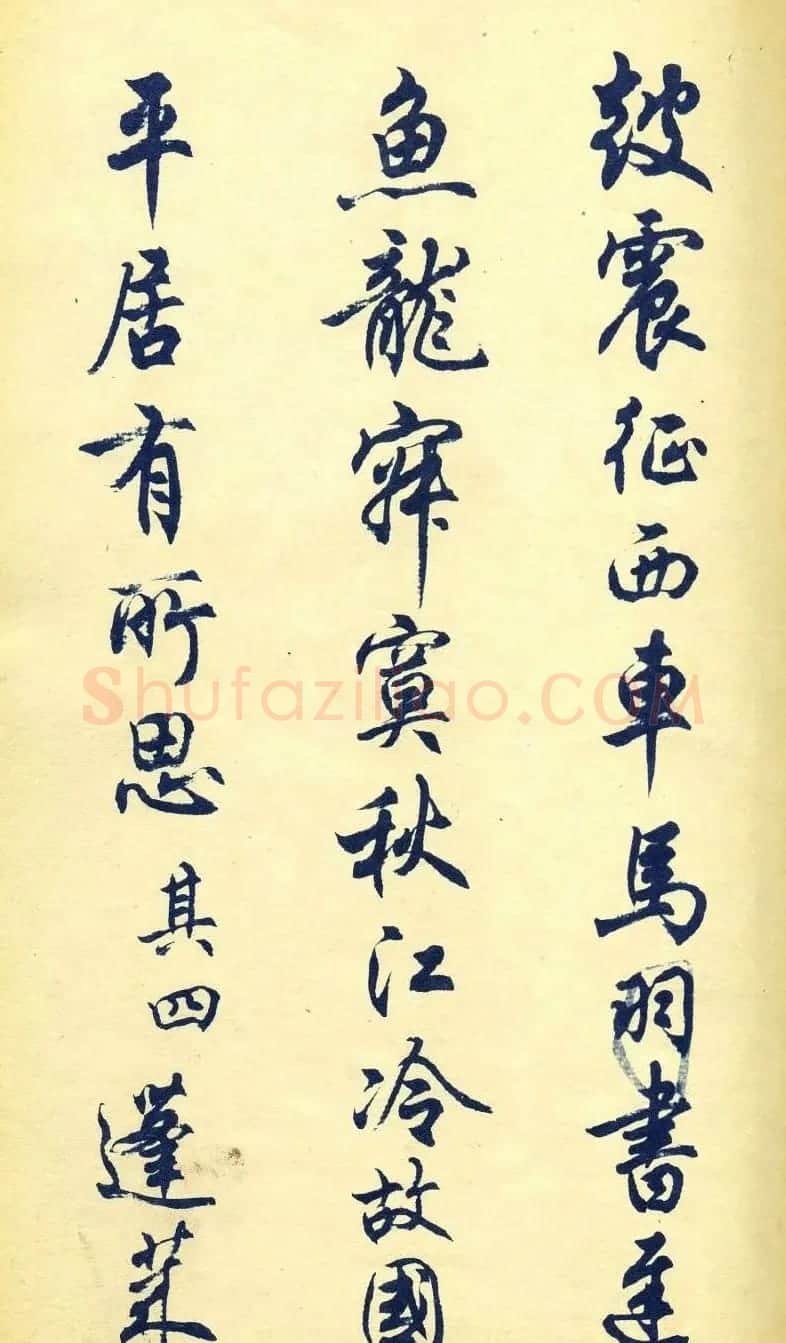 鼓震征西車馬羽書
魚龍寂寞秋江冷故國
平居有所思其四蓬萊
Shufaziliao.COM